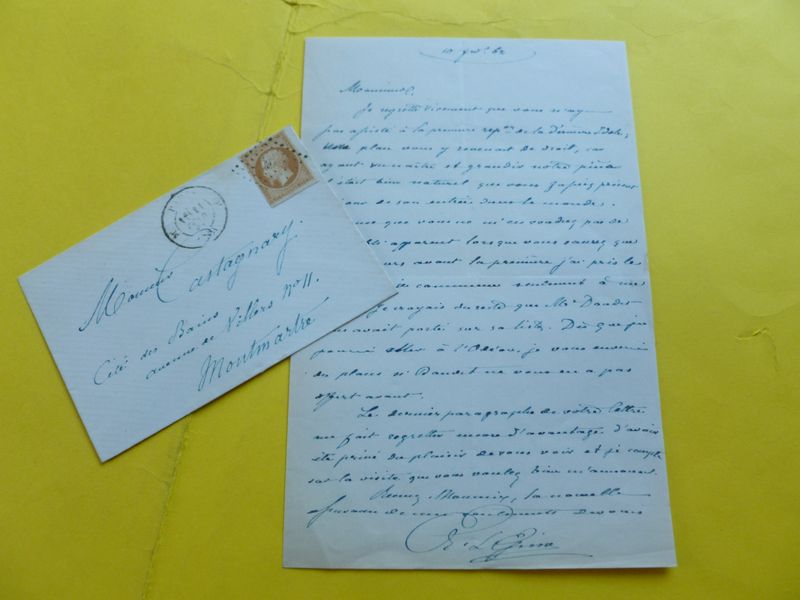 10 fév. 62
Monsieur,
Je regrette vivement que vous n'ayez
pas assisté à la première repon de la Dernière Idole,
votre place vous y revenait de droit, car
ayant vu naître et grandir notre pièce
il était bien naturel que vous fussiez présent
au jour de son entrée dans le monde.
que vous ne m'en voudrez pas de
apparent lorsque vous saurez que
jours avant la première j'ai pris le
commence seulement à me
Je croyais du reste que Mr Daudet
vous avait porté sur sa liste. Dès que je
pourrai aller à l'Odéon, je vous enverrai
des places si Daudet ne vous en a pas
offert avant.
Le dernier paragraphe de votre lettre
me fait regretter encore d'avantage d'avoir
été privé du plaisir de vous voir et je compte
sur la visite que vous voulez bien m'annoncer.
Monsieur, la nouvelle
de mes sentiments dévoués
Monsieur Castagnary.
Cité des Bains
avenue de Villers No 11.
Montmartre